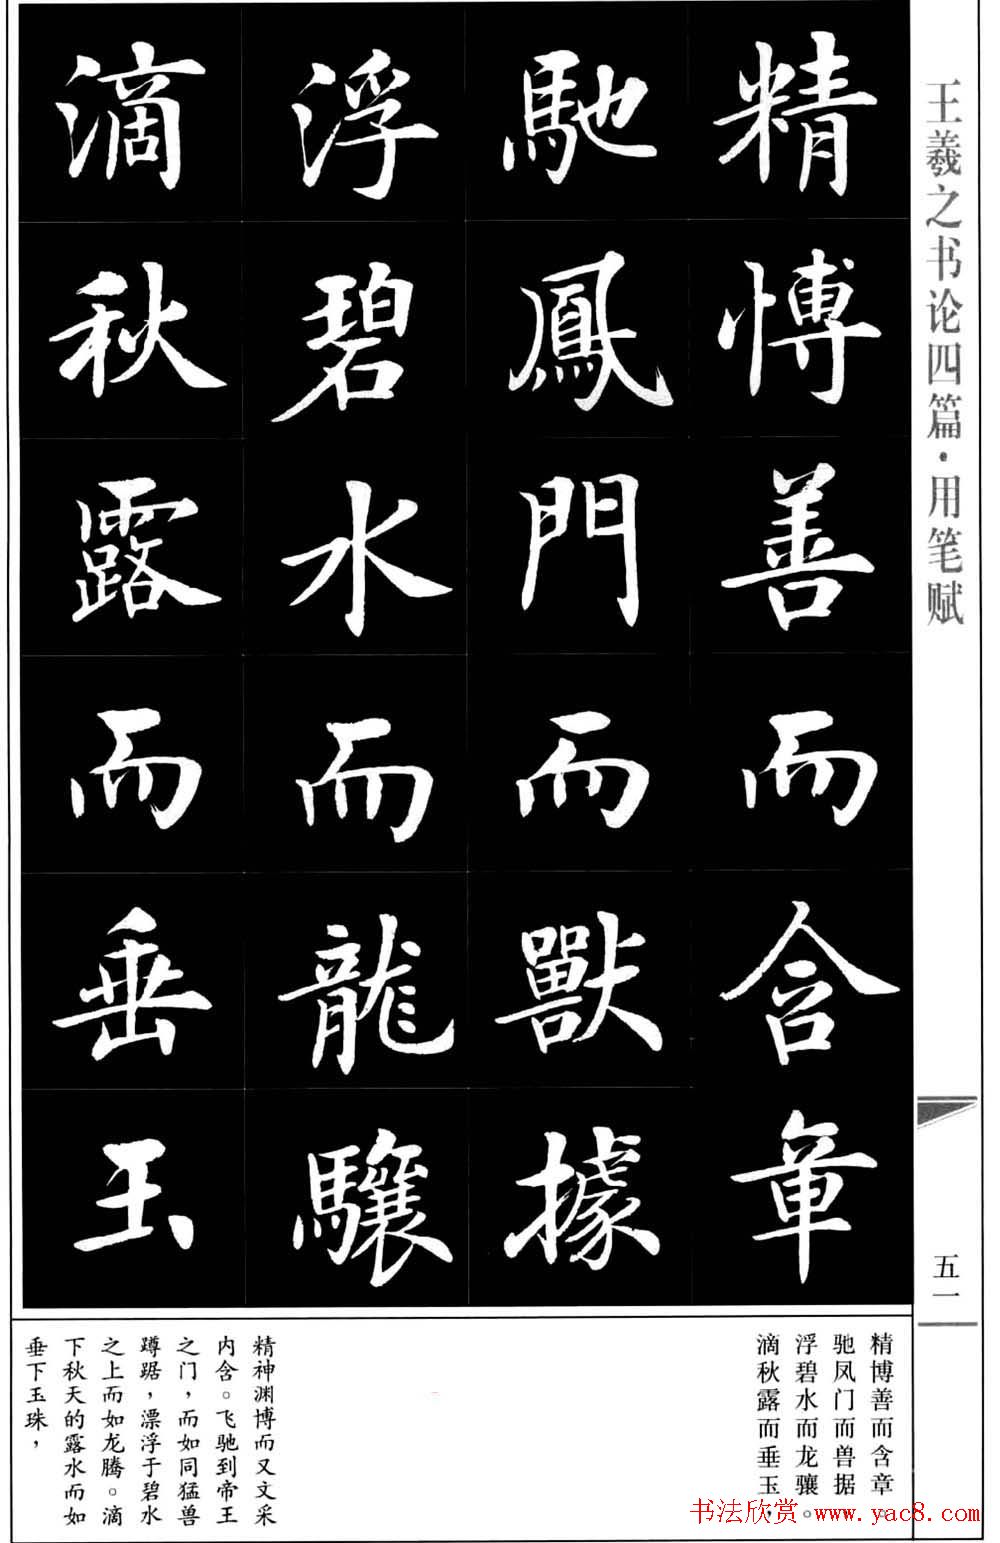 王羲之书论四篇·用笔赋
五一
精博善而含章
馳鳳門而獸據
浮碧水而龍驤
滴秋露而垂玉
精博善而含章。
驰凤门而兽据。
浮碧水而龙骧。
滴秋露而垂玉，
精神渊博而又文采
内含。飞驰到帝王
之门，而如同猛兽
蹲踞，漂浮于碧水
之上而如龙腾。滴
下秋天的露水而如
垂下玉珠，
书法欣赏 www.yac8.com